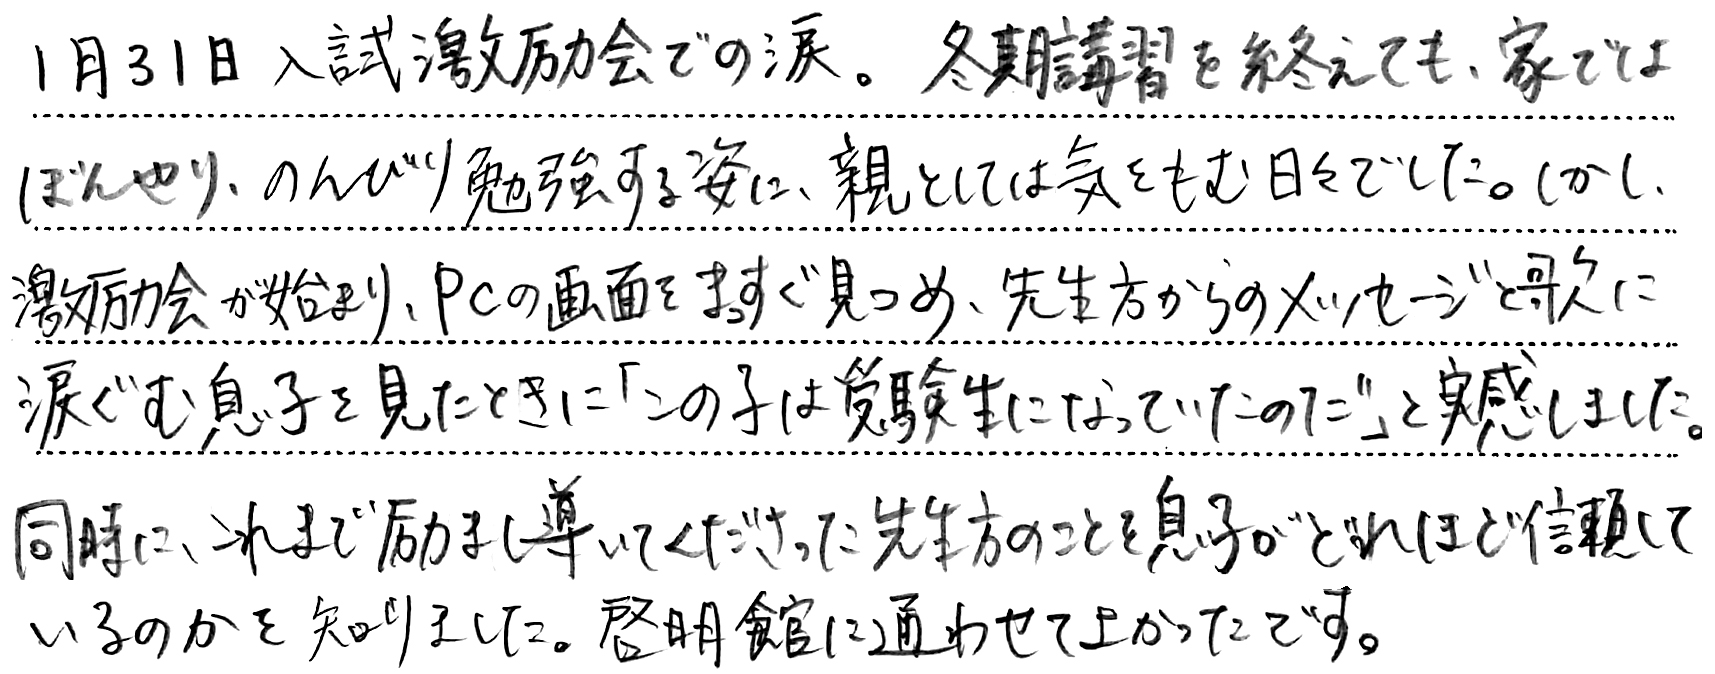 1月31日入試激励会での涙。冬期講習を終えても、家では
ぼんやり、のんびり勉強する姿に、親としては気をもむ日々でした。しかし、
激励会が始まり、PCの画面をまっすぐ見つめ、先生方からのメッセージと歌に
涙ぐむ息子を見たときに「この子は受験生になっていたのだ」と実感しました。
同時に、これまで励まし導いてくださった先生方のことを息子がどれほど信頼して
いるのかを知りました。啓明館に通わせて上かったです。